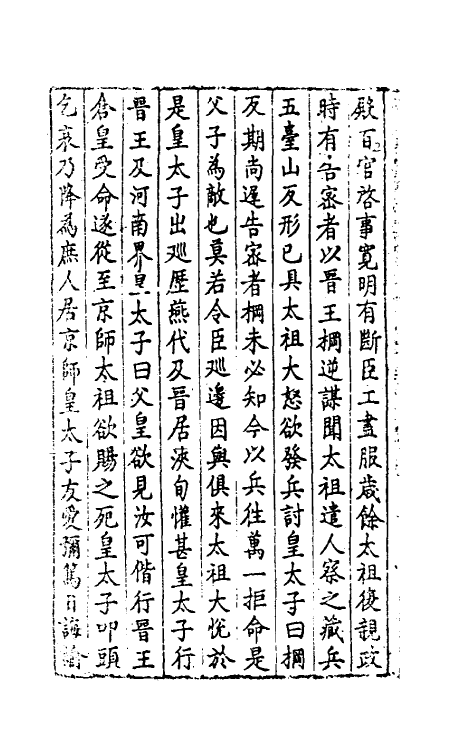 殿百官啓事寬明有斷臣工盡服歲餘太祖復親政
時有告密者以晉王棡逆謀聞太祖遣人察之藏兵
五臺山反形已具太祖大怒欲發兵討皇太子曰棡
反期尚遲告密者棡未必知今以兵往萬一拒命是
父子為敵也莫若令臣廵邊因與俱來太祖大悅於
是皇太子出廵歷燕代及晉居浹旬懽甚皇太子行
晉王及河南界皇太子曰父皇欲見汝可偕行晉王
倉皇受命遂從至京師太祖欲賜之死皇太子叩頭
乞哀乃降為庶人居京師皇太子友愛彌篤日誨諭